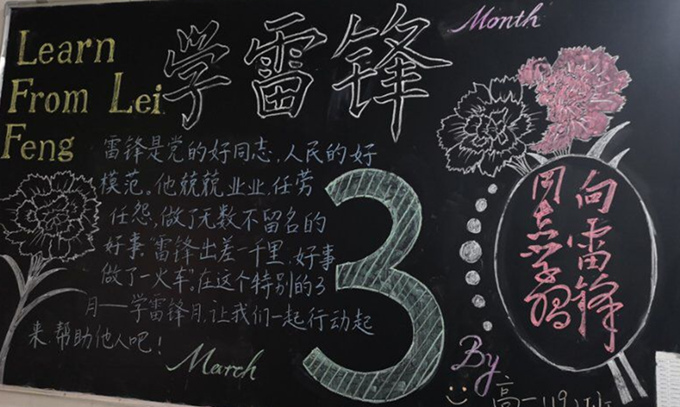 Learn
From Lei
Feng
学雷锋
Month
雷锋是党的好同志,人民的好
模范。他兢兢业业,任劳
任怨,做了无数不留名的
好事。“雷锋出差一千里,好事
做了一火车”。在这个特别的3
月——学雷锋月,让我们一起行动起
来,帮助他人吧!
3
March
向雷锋
同志学习
By